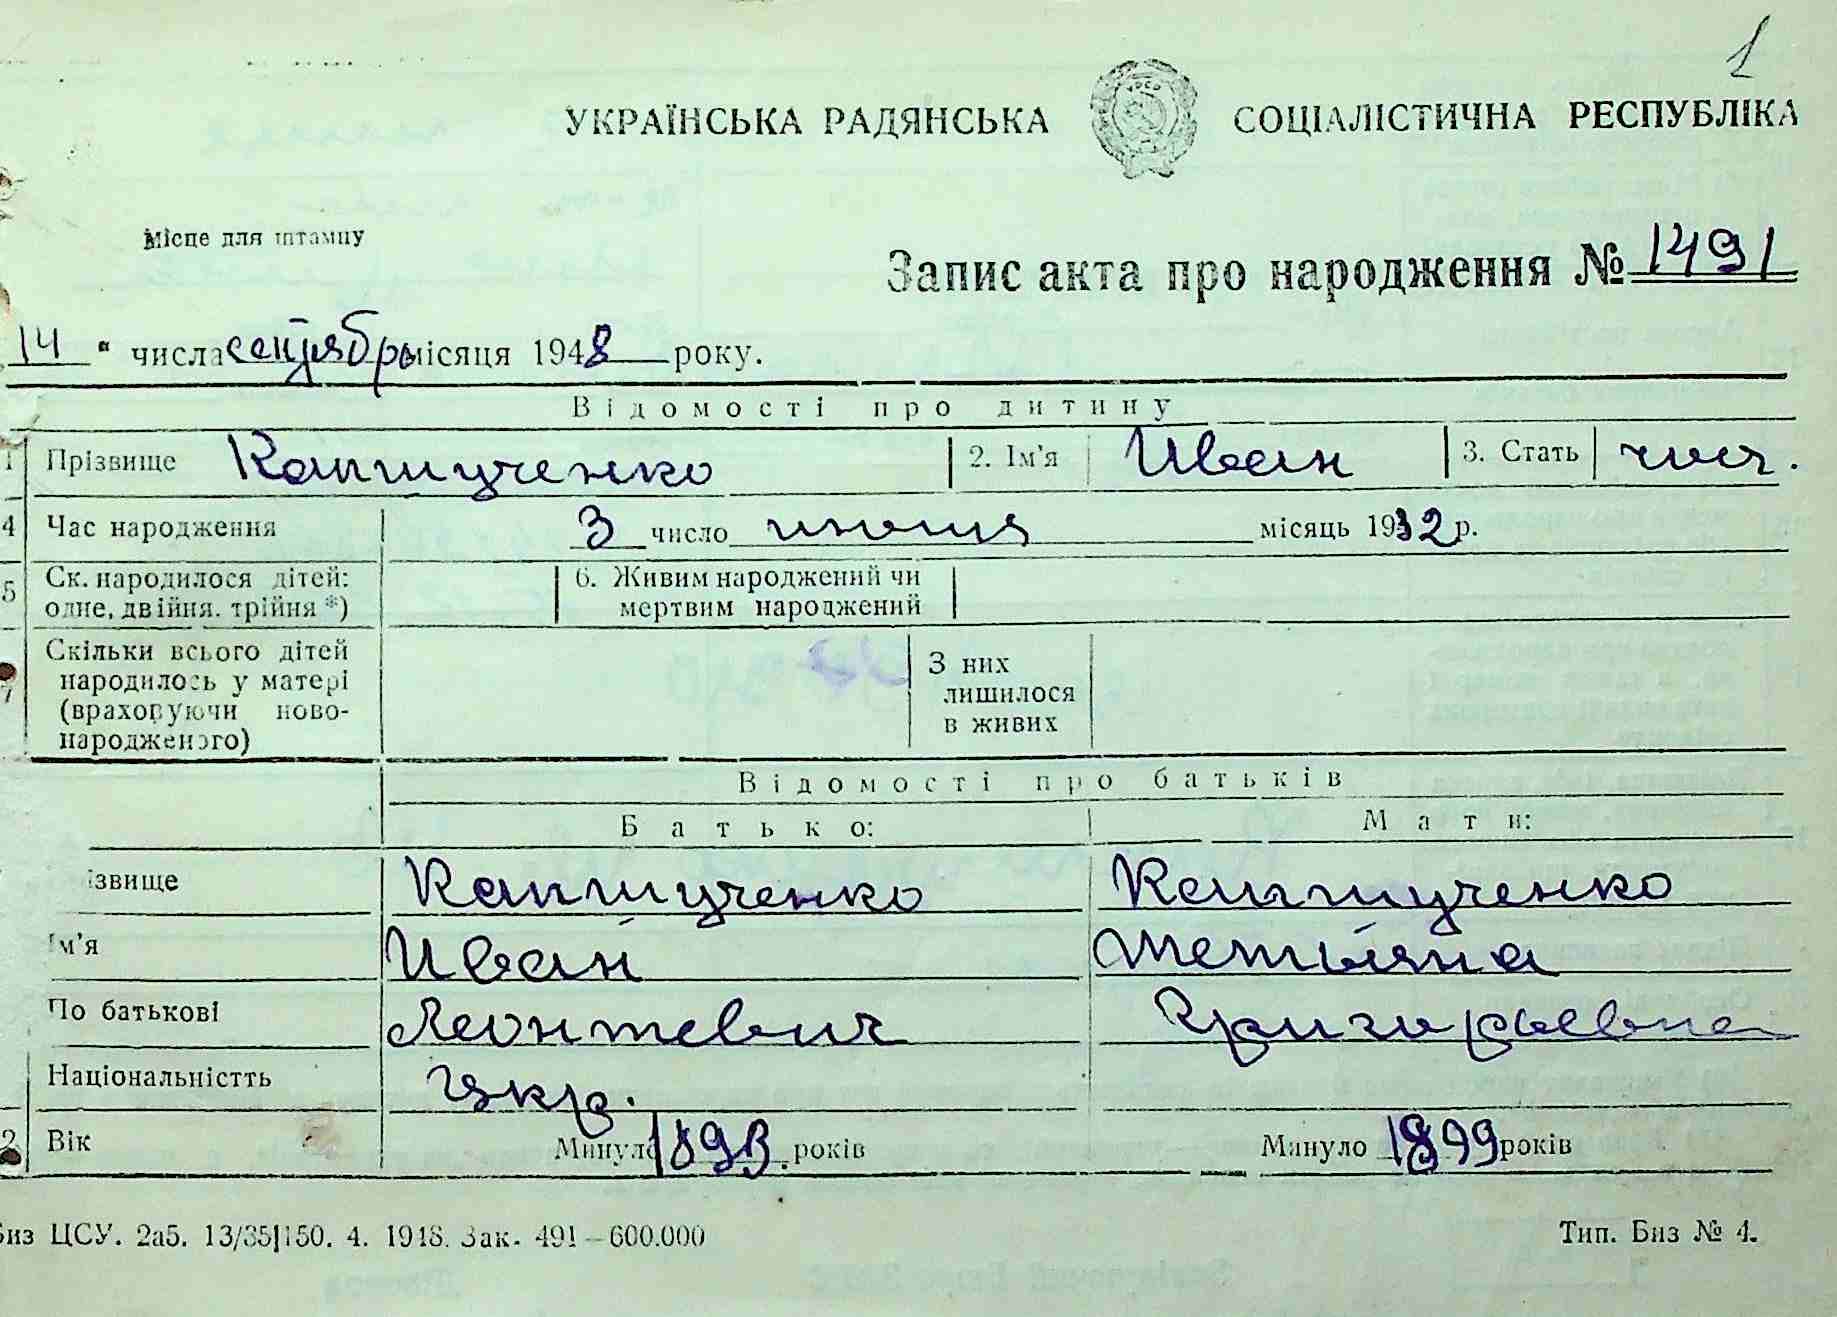 1
УКРАЇНСЬКА РАДЯНСЬКА СОЦІАЛІСТИЧНА РЕСПУБЛІКА
УРСР
Місце для штампу
Запис акта про народження № 1491
14 " числа сентябрь місяця 1948 року.
Відомості про дитину
1 Прізвище Каптученко 2. Ім'я Иван 3. Стать
4 Час народження 3 число июня місяць 1932 р.
5 Ск. народилося дітей: 6. Живим народжений чи
одне, двійня, трійня *) мертвим народжений
Скільки всього дітей З них
народилось у матері лишилося
7 (враховуючи ново- в живих
народженого)
Відомості про батьків
Батько: Мати:
ізвище Каптученко Каптученко
Ім'я Иван Тетьяна
По батькові Леонтевич Григорьевна
Національністть укр.
2 Вік Минуло 1893. років Минуло 1899 років
Биз ЦСУ. 2а5. 13/35|150. 4. 1948. Зак. 491—600.000 Тип. Биз № 4.